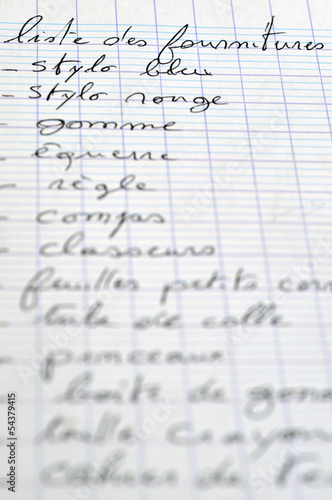 liste des fournitures
- stylo bleu
- stylo rouge
- gomme
- équerre
- règle
- compas
- classeurs
- feuilles petits
- tube de colle
- pinceaux
boite de
taille crayon
54379415